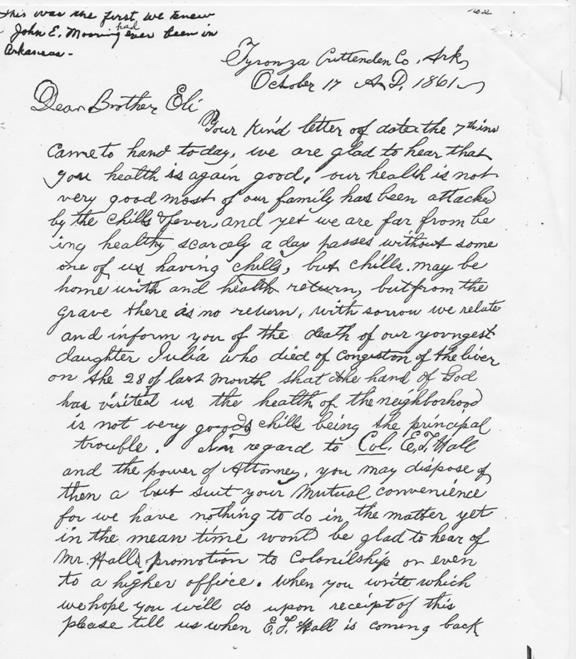 This was the first, we knew
John E. Mooring had ever been in
Arkansas -
Tyronza Crittenden Co, Ark,
October 17 A.D. 1861
Dear Brother Eli
Your kind letter of date the 7th ins
came to hand today, we are glad to hear that
you health is again good, our health is not
very good most of our family has been attacked
by the chills & fever, and yet we are far from be
ing healthy scarcely a day passes without some
one of us having chills, but chills may be
home with and health return, but from the
grave there is no return, with sorrow we relate
and inform you of the death of our youngest
daughter Julia who died of congestion of the liver
on the 28 of last month that the hand of God
has visited us the health of the neighborhood
is not very good chills being the principal
trouble. In regard to Col. E.T. Hall
and the power of Attorney, you may dispose of
then a but suit your mutual convenience
for we have nothing to do in the matter yet
in the mean time wont be glad to hear of
Mr. Halls promotion to Colonilship or even
to a higher office. When you write which
we hope you will do upon receipt of this
please till us when E.T. Hall is coming back